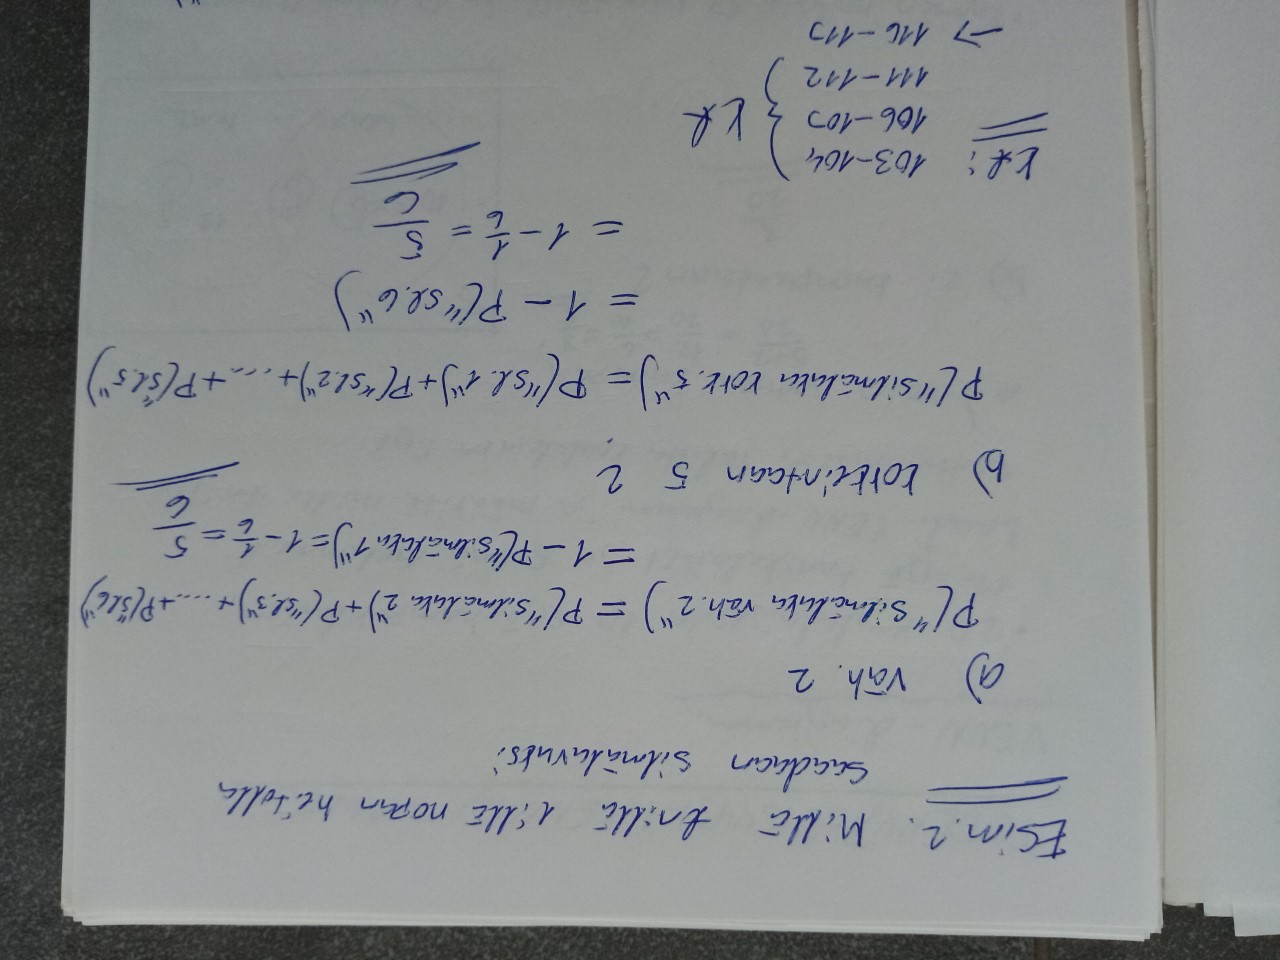 Esim.2. Millä tn:llä 1:llä nopan heitolla
saadaan silmäluvuksi:
a) väh. 2
P("Silmäluku väh. 2") = P("silmäluku 2") + P("sl.3") + .... + P("sl 6")
= 1 - P("silmäluku 1") = 1 - 1/6 = 5/6
b) korkeintaan 5 ?
P("silmäluku kork. 5") = P("sl. 1") + P("sl.2") + .... + P("sl.5")
= 1 - P("sl.6")
= 1 - 1/6 = 5/6
103-104
106-109
111-112
→ 116-119